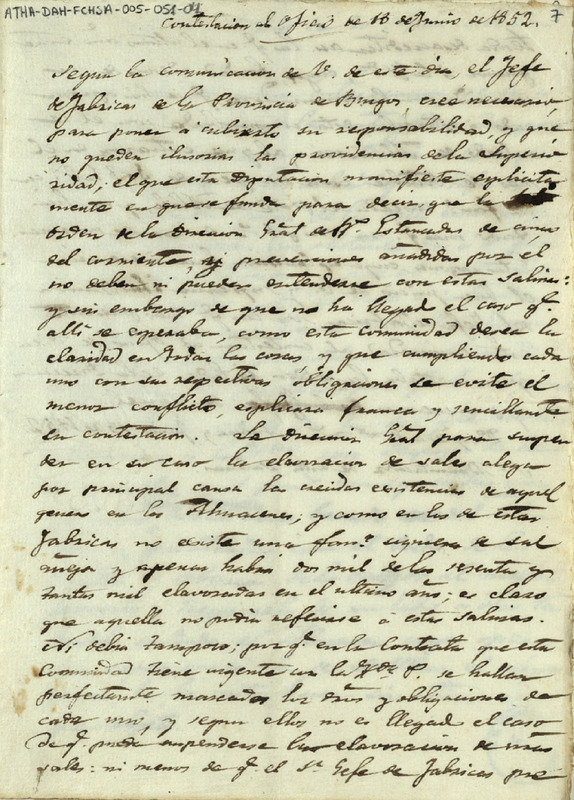 ATHA-DAH-FCHSA-005-051-04
Contestacion al Oficio de 18 de Junio de 1852.
7
Segun la comunicacion de V. de este dia, el Jefe
de Fabricas de la Provincia de Burgos, cree necesario,
para poner á cubierto su responsabilidad, y que
no queden ilusorias las providencias de la Superio
ridad; el que esta Diputacion manifieste esplicita
mente en que se funda para decir, que la
orden de la Direccion Gral de Rs. Estancadas de cinco
del corriente, ni prevenciones añadidas por el
no deben ni pueden entenderse con estas Salinas:
y sin embargo de que no ha llegado el caso q.
alli se esperaba, como esta comunidad desea la
claridad en todas las cosas, y que cumpliendo cada
uno con sus respectivas obligaciones se evite el
menor conflicto, esplicara franca y sencillamte.
en contestacion. La Direccion Gral para suspen
der en su caso la elavoracion de sales alega
por principal causa las crecidas existencias de aquel
genero en los Almacenes; y como en los de estas
Fabricas no existe una fan.ª siquiera de sal
añeja y apenas habra dos mil de las sesenta y
tantas mil elavoradas en el ultimo año; es claro
que aquella no podia referirse a estas Salinas.
Ni debia tampoco; por q. en la Contrata que esta
Comunidad tiene vigente con la Hda. P. se hallan
perfectamte. marcados los dros y obligaciones de
cada uno, y segun ellos no es llegado el caso
de q. pueda suspenderse la elavoracion de mas
sales: ni menos de q. el Sr. Gefe de Fabricas pre